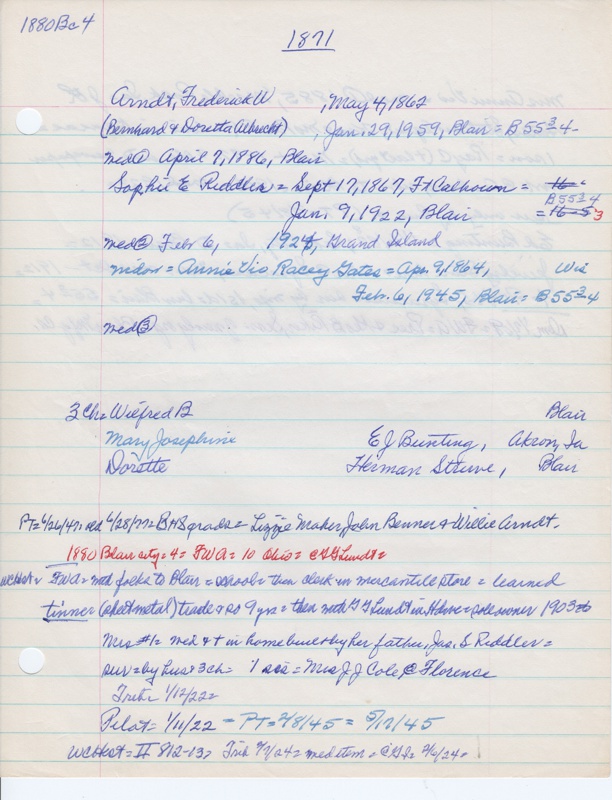 1880 Bc 4
1871
Arndt, Frederick W , May 4, 1862
(Bernhard & Doretta Albrecht) , Jan. 29, 1959, Blair = B 55 3 4
med ① April 7, 1886, Blair
Sophie E Riddler = Sept 17, 1867, Ft Calhoun = 16
B 55 3 4
Jan. 9, 1922, Blair = 16-5 3
med ② Feb 6, 1924, Grand Island
widow = Annie Vio Racey Gates = Apr. 9, 1864, Wis
Feb. 6, 1945, Blair = B 55 3 4
med ③
3 Ch = Wilfred B Blair
Mary Josephine E J Bunting, Akron, Ia
Dorette Herman Struve, Blair
PT = 6/26/47 = 6/28/77 = BHS grads = Lizzie Maher, John Benner & Willie Arndt.
1880 Blair city = 4 = FWA = 10 Ohio = C H G Lundt =
WCHist = FWA = with folks to Blair = school = then clerk in mercantile store = learned
tinner (sheet metal) trade & so 9 yrs = then with G Lundt in Hdwe = sole owner 1903
Mrs #1 = med & t in home built by her father, Jas. S Riddler =
sur = by hus & 3 ch = 1 sis = Mrs J J Cole, @ Florence
Trib = 1/12/22 =
Pilot = 1/11/22 = PT = 2/8/45 = 5/17/45
WCHist = II 812-13 = Trib 2/7/24 = med item = 2/6/24 =